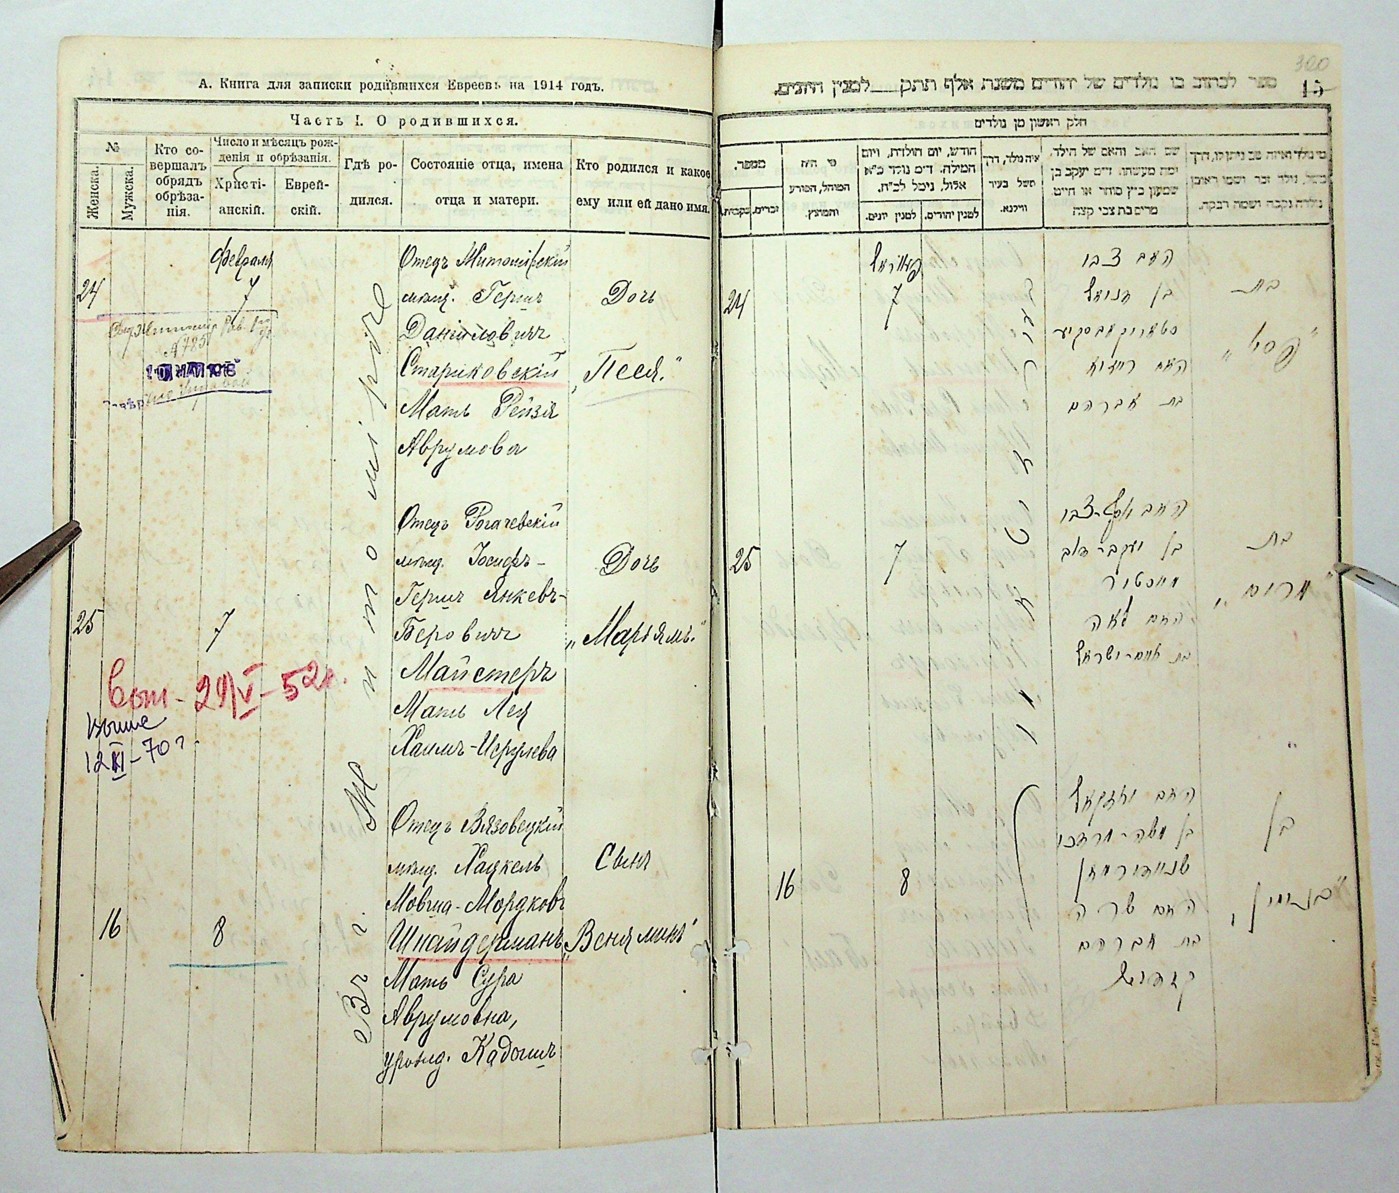 А. Книга для записки родившихся Евреевъ на 1914 годъ.
Часть I. О родившихся.
№
Женска.
Мужска.
Кто со-
вершалъ
обрядъ
обрѣза-
нія.
Число и мѣсяцъ рож-
денія и обрѣзанія.
Христі-
анскій.
Еврей-
скій.
Гдѣ ро-
дился.
Состояніе отца, имена
отца и матери.
Кто родился и какое
ему или ей дано имя.
24
Февраля
7
Отецъ Житомірскій
мѣщ. Гершъ
Даниловичъ
Стариковскій
Мать Рейзя
Аврумова
Дочь
„Песя."
Въ г. Житомірѣ
25
7
вып. - 29/V - 52г.
12 XI - 70 г.
Отецъ Рогачевскій
мѣщ. Іосифъ-
Гершъ Янкевъ-
Беровичъ
Майстеръ
Мать Лея
Хаимъ-Исрулева
Дочь
„Марьямъ."
16
8
Отецъ Вязовецкій
мѣщ. Хацкель
Мовша-Мордковъ
Шнайдерманъ
Мать Сура
Аврумовна,
урожд. Кадошъ
Сынъ
„Веняминъ"
320
15
ספר לכתוב בו נולדים של יהודים משנת אלף תתק___למנין היונים.
חלק ראשון מן נולדים
מספר.
נקבות.
זכרים.
מי היה
המוהל, הפורע
והמוצץ.
חודש, יום תולדת, ויום
המילה. ד״מ נולד כ״א
אלול, נימל לכ״ח.
למנין יונים.
למנין יהודים.
איה נולד, דרך
משל בעיר
ווילנא.
שם האב והאם של הילד.
ומה מעשהו. ד״מ יעקב בן
שמעון כ״ץ סוחר או חייט
מרים בת צבי קצה
מי נולד ואיזה שם ניתן לו, דרך
משל, נולד זכר ושמו ראובן
נולדה נקבה ושמה רבקה.
24
פעווראל
7
האב צבי
בן דניאל
סטאריקאווסקיי
האם רייזיא
בת אברהם
בת
„פסי"
25
7
האב יוסף-צבי
בן יעקב-דוב
מייסטער
האם לאה
בת חיים-ישראל
בת
„מרים"
16
8
האב יחזקאל
בן משה-מרדכי
שניידערמאן
האם שרה
בת אברהם
קאדאש
בן
„בנימין"